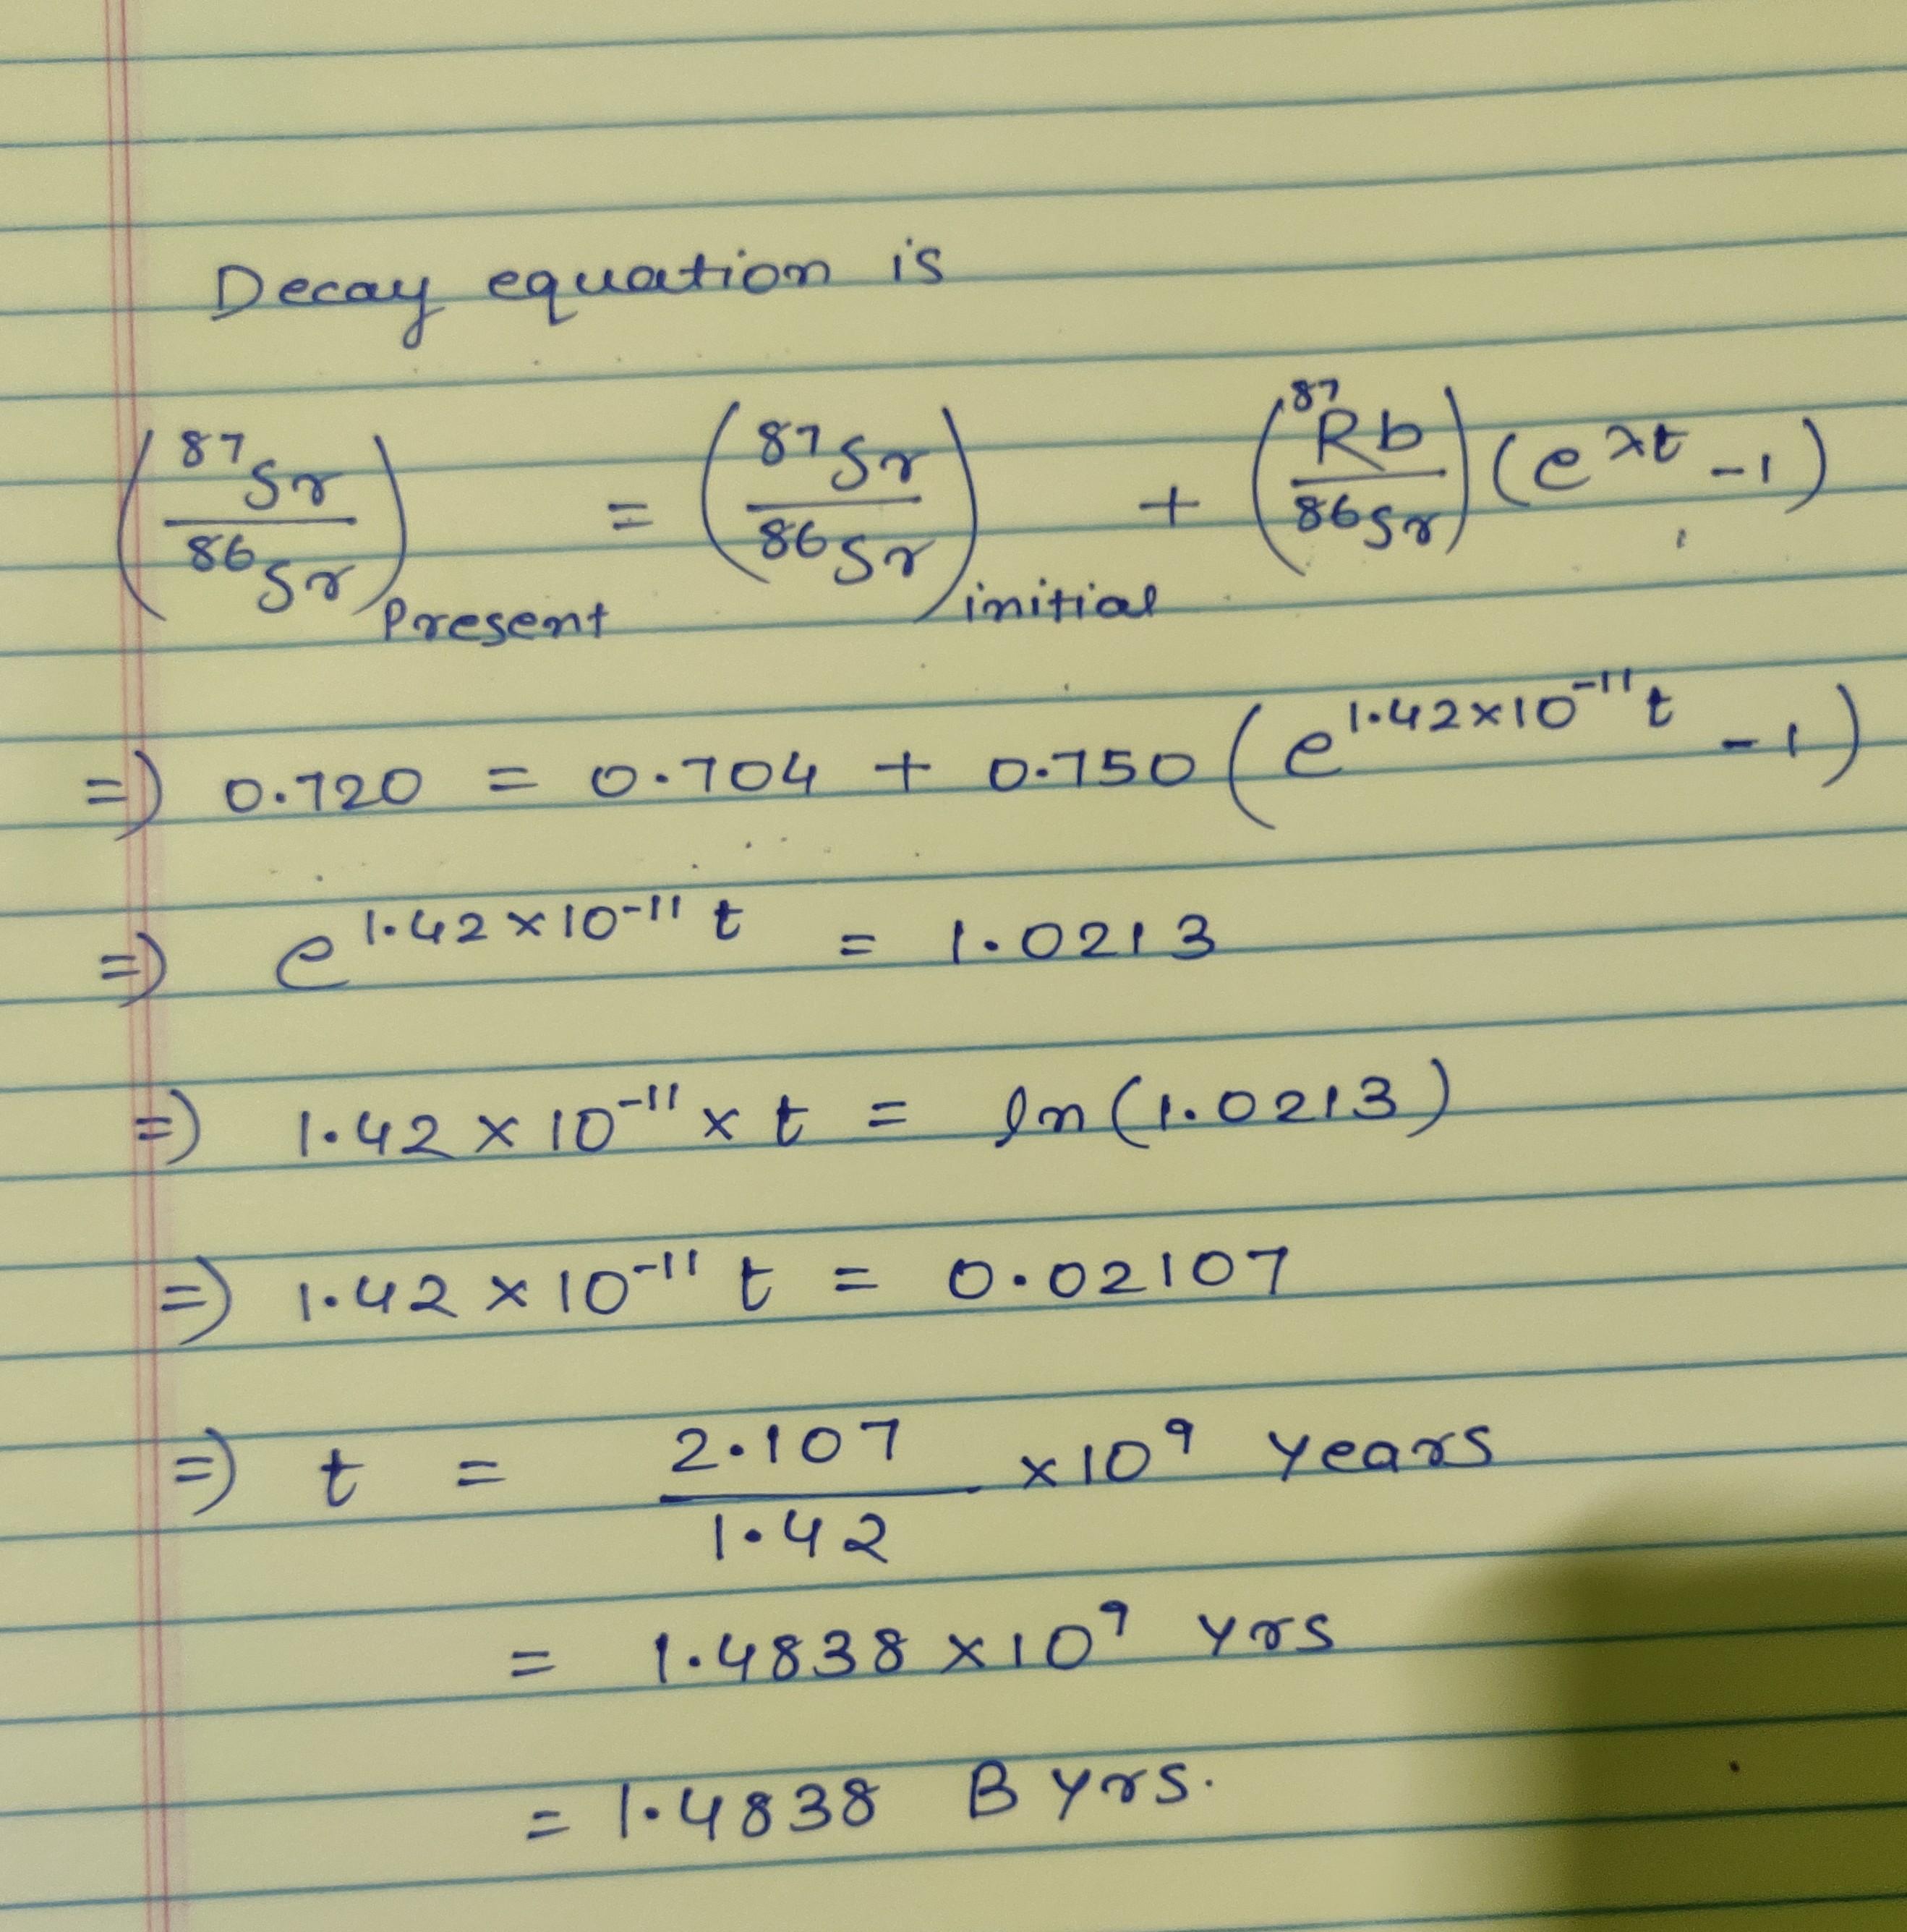 Decay equation is
(⁸⁷Sr / ⁸⁶Sr)Present = (⁸⁷Sr / ⁸⁶Sr)initial + (⁸⁷Rb / ⁸⁶Sr) (e^λt - 1)
=) 0.720 = 0.704 + 0.750 (e^1.42×10⁻¹¹t - 1)
=) e^1.42×10⁻¹¹ t = 1.0213
=) 1.42 × 10⁻¹¹ × t = ln(1.0213)
=) 1.42 × 10⁻¹¹ t = 0.02107
=) t = 2.107 / 1.42 × 10⁹ years
= 1.4838 × 10⁹ yrs
= 1.4838 B yrs.